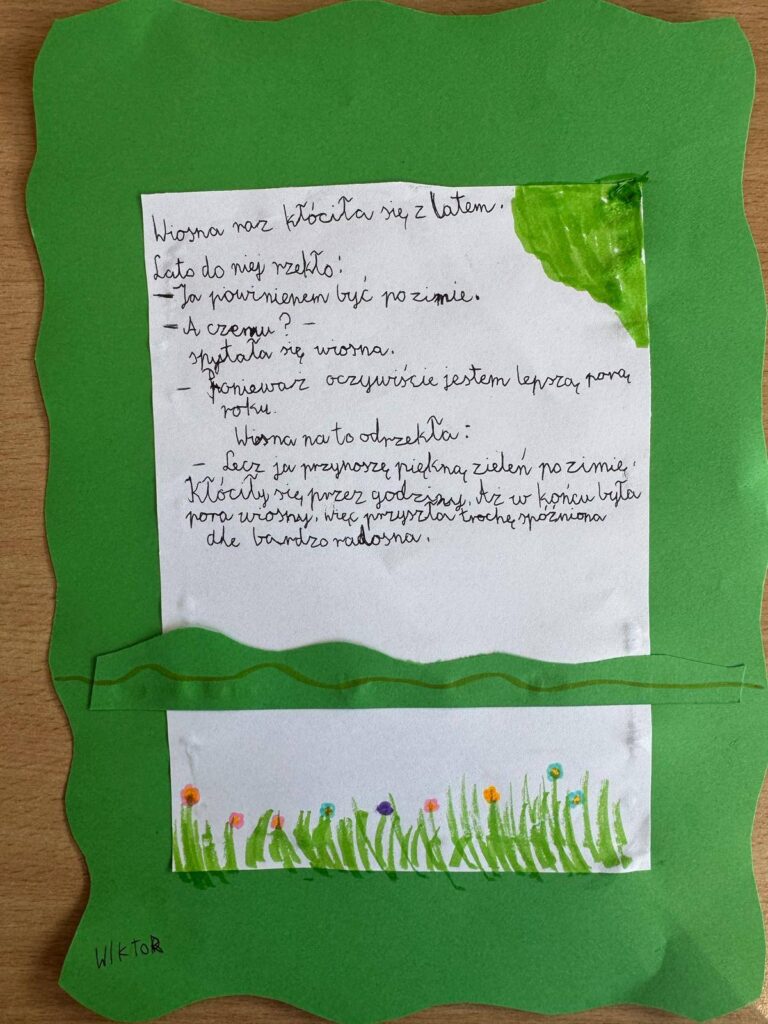 Wiosna raz kłóciła się z latem.
Lato do niej rzekło:
- Ja powinienem być po zimie.
- A czemu? -
spytała się wiosna.
- Ponieważ oczywiście jestem lepszą porą
roku.
Wiosna na to odrzekła:
- Lecz ja przynoszę piękną zieleń po zimię.
Kłóciły się przez godziny. Aż w końcu była
pora wiosny, więc przyszła trochę spóźniona
ale bardzo radosna.
WIKTOR